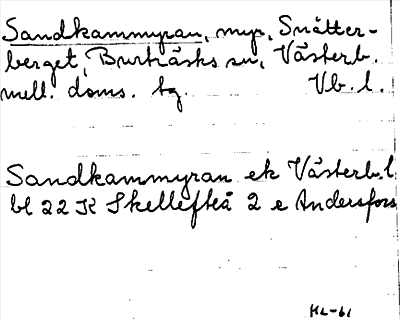 Sandkammyran, myr, Snätter-
berget, Burträsks sn, Västerb.
mell. doms. tg. Vb. l.
Sandkammyran ek Västerb. l
bl 22 K Skellefteå 2 e Andersfors
HL-61